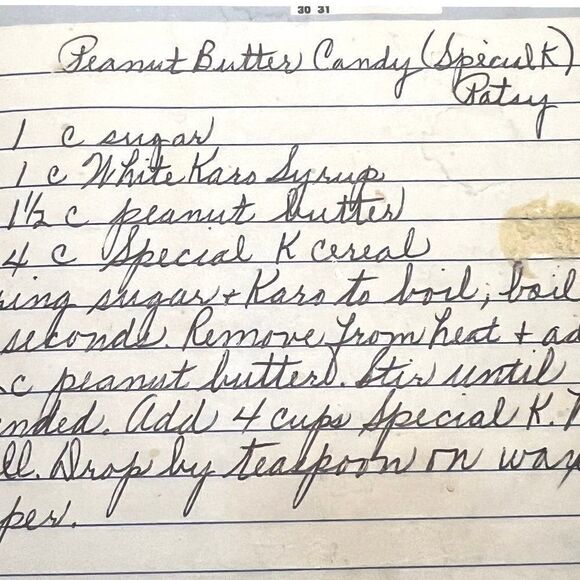 30 31
Peanut Butter Candy (Special K)
Patsy
1 c sugar
1 c White Karo Syrup
1½ c peanut butter
4 c Special K cereal
ring sugar + Karo to boil, boil
seconds. Remove from heat + ad
c peanut butter. Stir until
nded. Add 4 cups Special K.
ll. Drop by teaspoon on wax
per.